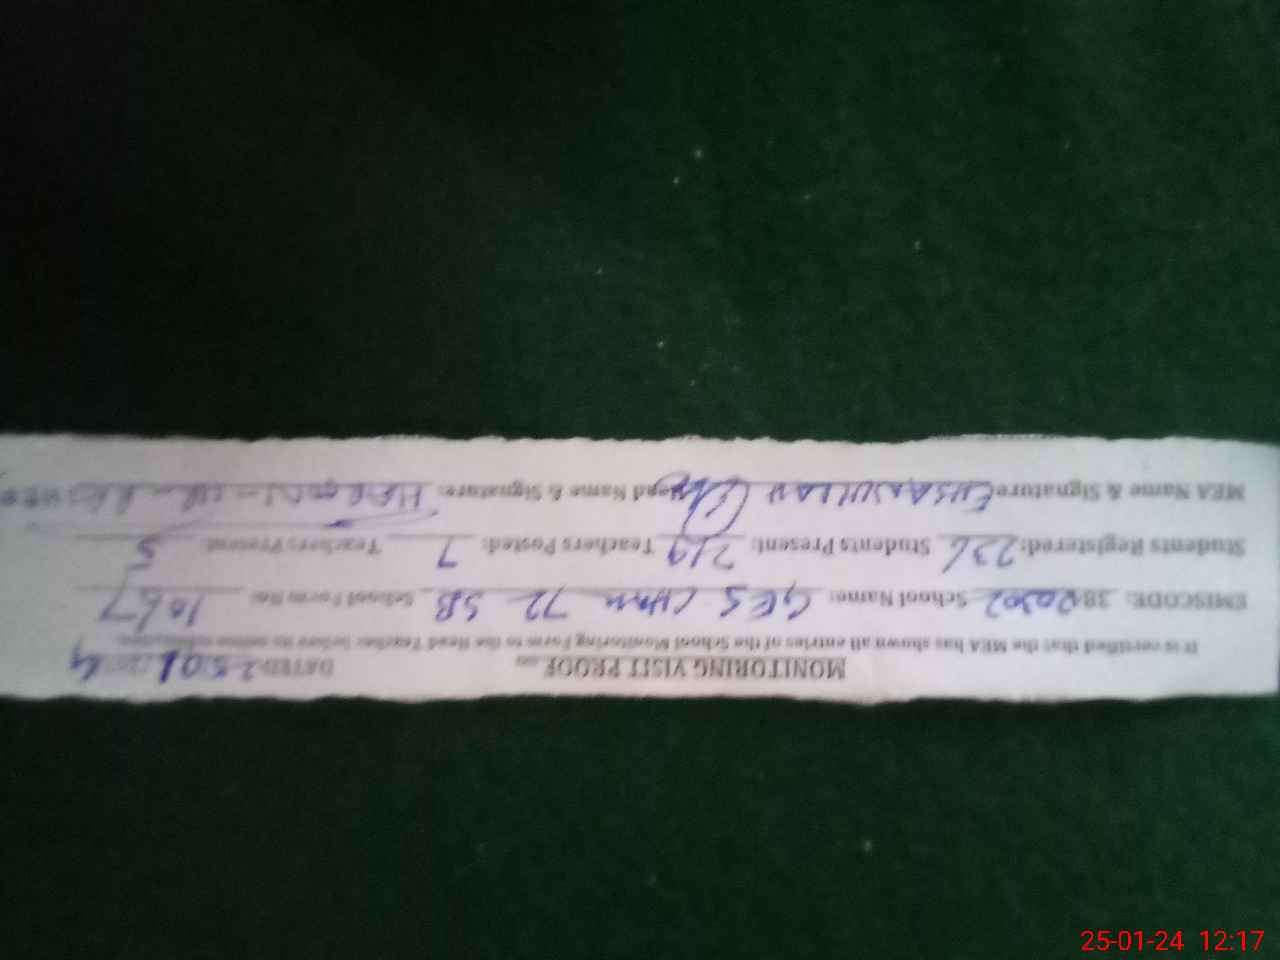 MONITORING VISIT PROOF DATED 25/01/2024
It is certified that the MEA has shown all entries of the School Monitoring Form to the Head Teacher before its online submission.
EMISCODE: 38 School Name: GES CHAK 72 SB School Form No: 1067
Students Registered: 236 Students Present: 219 Teachers Posted: 7 Teachers Present: 5
MEA Name & Signature EHSANULLAH Head Name & Signature:
25-01-24 12:17